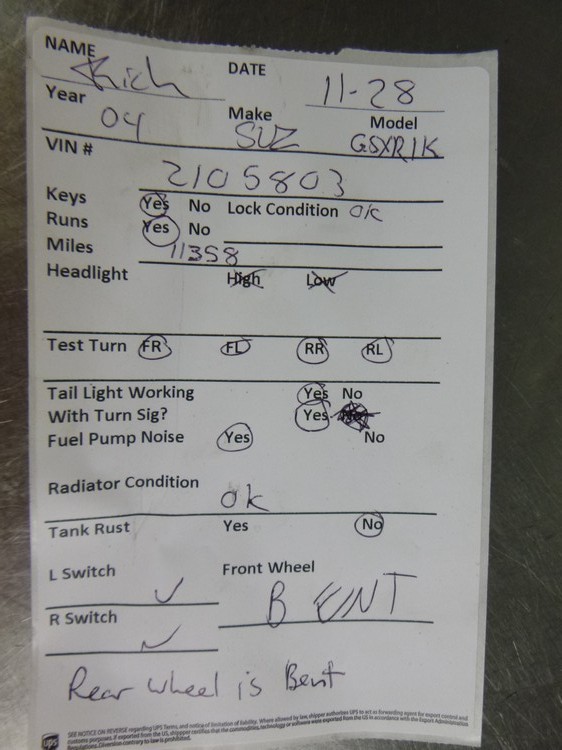 NAME Rich DATE 11-28
Year 04 Make SUZ Model GSXR1K
VIN # 2105803
Keys Yes No Lock Condition OK
Runs Yes No
Miles 11358
Headlight High Low
Test Turn FR FL RR RL
Tail Light Working Yes No
With Turn Sig? Yes No
Fuel Pump Noise Yes No
Radiator Condition ok
Tank Rust Yes No
L Switch ✓ Front Wheel BENT
R Switch ✓
Rear wheel is Bent
ups
SEE NOTICE ON REVERSE regarding UPS Terms, and notice of limitation of liability. Where allowed by law, shipper authorizes UPS to act as forwarding agent for export control and
customs purposes. If exported from the US, shipper certifies that the commodities, technology or software were exported from the US in accordance with the Export Administration
Regulations. Diversion contrary to law is prohibited.